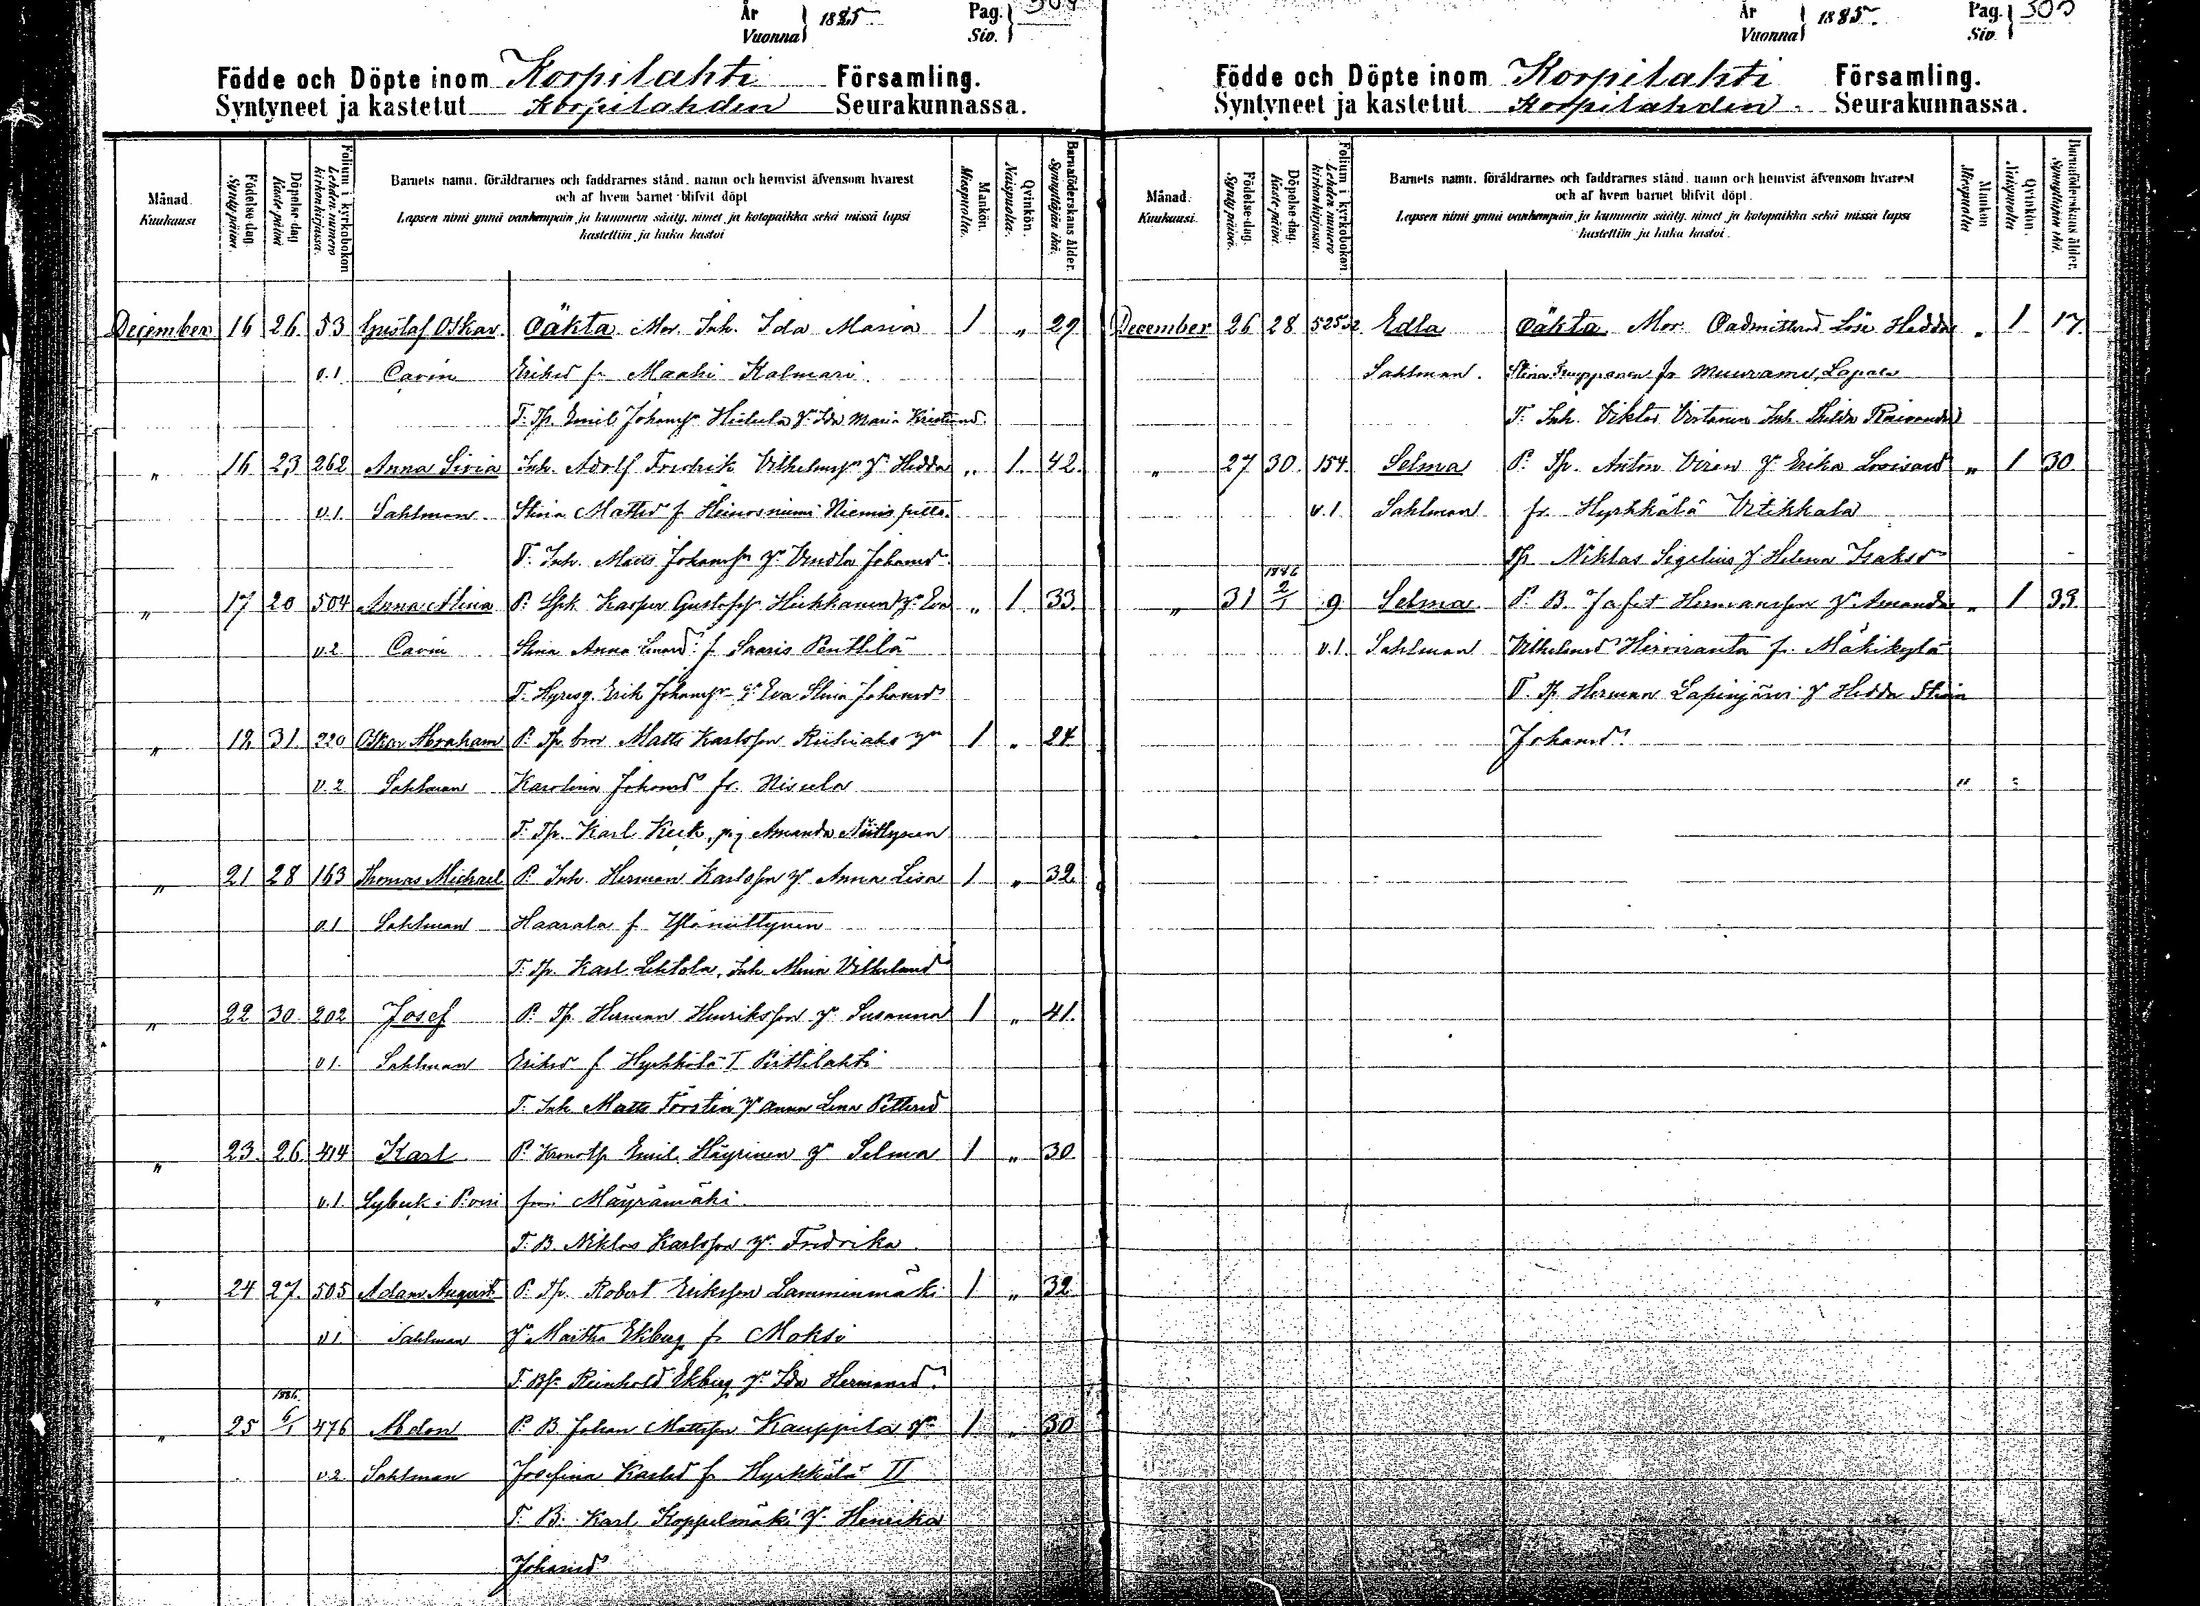 År
Vuonna
1885
Pag.
Siv.
Födde och Döpte inom Korpilahti Församling.
Syntyneet ja kastetut Korpilahden Seurakunnassa.
Månad. Kuukausi
Födelse-dag. Syntypäivä.
Döpelse-dag Kaste-päivä
Folium i kyrkoboken Lehden numero kirkonkirjassa.
Barnets namn. föräldrarnes och faddrarnes stånd. namn och hemvist äfvensom hvarest
och af hvem barnet blifvit döpt
Lapsen nimi ynnä vanhempain ja kummein sääty. nimet ja kotopaikka sekä missä lapsi
kastettiin ja kuka kastoi
Mankön. Miespuolta.
Qvinkön. Naispuolta.
Barnaföderskans ålder. Synnyttäjän ikä.
December 16 26 53 Gustaf Oskar Oäkta Mor. Inh. Ida Maria 1 " 29
v.1 Cavin Eriksd fr Maahi Kalmari
T. Tp. Emil Johansson Hiekela Ida Maria
" 16 23 262 Anna Siviä Inh. Adolf Fredrik Vilhelmsson Hedda " 1 42.
v.1. Sahlman Stina Mattsd f Heinosniemi Niemis
T. Inh. Matts Johansson Vendla Johansd
" 17 20 504 Anna Alina P. Kasper Gustafsson Hiekkanen Eva " 1 33.
v.2 Cavin Stina Anna f Saaris Penttilä
T. Hyresg. Erik Johansson Eva Stina Johansd
" 18 31 220 Oskar Abraham P. Tp. Matts Karlsson 1 " 24
v.2 Sahlman Karolina Johansd fr. Nisula
T. Tp. Karl Keck, pig Amanda Niittynen
" 21 28 163 Thomas Michael P. Inh. Herman Karlsson Anna Lisa 1 " 32
v.1 Sahlman Haarala f Yläniittynen
T. Tp. Karl Lehtola, Inh. Mina Vilhelmsd
" 22 30 202 Josef P. Tp Herman Henriksson Susanna 1 " 41.
v.1. Sahlman Eriksd f Hyrkkölä I Pirttilahti
T. Inh Matts Törstin Anna Lena Pettersd
" 23. 26. 414 Karl P. Kronotp Emil Häyrinen Selma 1 " 30
v.1. från Mäyrämäki
T. B. Niklas Karlsson Fredrika
" 24 27. 505 Adam August P. Tp. Robert Eriksson Lamminmäki 1 " 32
v.1. Sahlman Maitha Ekberg fr Moksi
T. Reinhold Ekberg Ida Hermansd.
1886
" 25 6/1 476 P. B. Johan Mattsson Kauppila 1 " 30
v.2 Sahlman Josefina Karlsd fr Hyrkkälä II
T. B. Karl Koppelmäki Henrika
Johansd
År
Vuonna
1885.
Pag.
Siv.
305
Födde och Döpte inom Korpilahti Församling.
Syntyneet ja kastetut Korpilahden Seurakunnassa.
Månad. Kuukausi.
Födelse-dag. Syntypäivä.
Döpelse-dag. Kaste-päivä.
Folium i kyrkoboken Lehden numero kirkonkirjassa.
Barnets namn. föräldrarnes och faddrarnes stånd. namn och hemvist äfvensom hvarest
och af hvem barnet blifvit döpt.
Lapsen nimi ynnä vanhempain ja kummein sääty. nimet ja kotopaikka sekä missä lapsi
kastettiin ja kuka kastoi.
Mankön Miespuolta
Qvinkön. Naispuolta
Barnaföderskans ålder. Synnyttäjän ikä.
December 26 28 Edla Oäkta Mor. Oadmitterad Lösa Hedda " 1 17.
Sahlman. Stina fr Muurame, Lapala
T. Inh. Viktor Virtanen Inh. Hilda
" 27 30. 154. Selma P. Tp. Anton Viren Erika Lovisasd " 1 30.
v.1 Sahlman fr. Hyrkkälä Vitikkala
Tp Niklas Sigelius Helena Isaksd
1886
" 31 2/1 9 Selma P. B. Jafet Hermansson Amanda " 1 33.
v.1. Sahlman Vilhelmsd Hirviranta fr. Mähikylä
T. Tp Herman Lapinjärvi Hedda Stina
Johansd.
" "